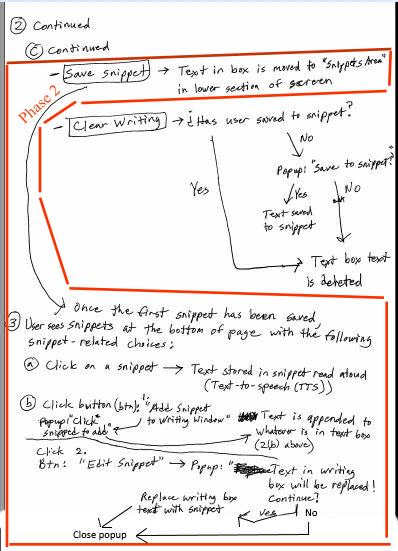 ② Continued
Ⓒ Continued
Phase 2
- Save snippet → Text in box is moved to "Snippets Area"
in lower section of screen
- Clear Writing → Has user saved to snippet?
No
Popup: "Save to snippet?"
Yes
Yes
No
Text saved
to snippet
Text box text
is deleted
Once the first snippet has been saved,
③ User sees snippets at the bottom of page with the following
snippet-related choices:
ⓐ Click on a snippet → Text stored in snippet read aloud
(Text-to-speech (TTS))
ⓑ Click button (btn): 1. "Add Snippet
to Writing Window"
Popup: "Click
snipped to add"
Text is appended to
whatever is in text box
(2(b) above)
Click 2.
Btn: "Edit Snippet" → Popup: "Text in writing
box will be replaced!
Continue?
Replace writing box
text with snippet
yes
No
Close popup